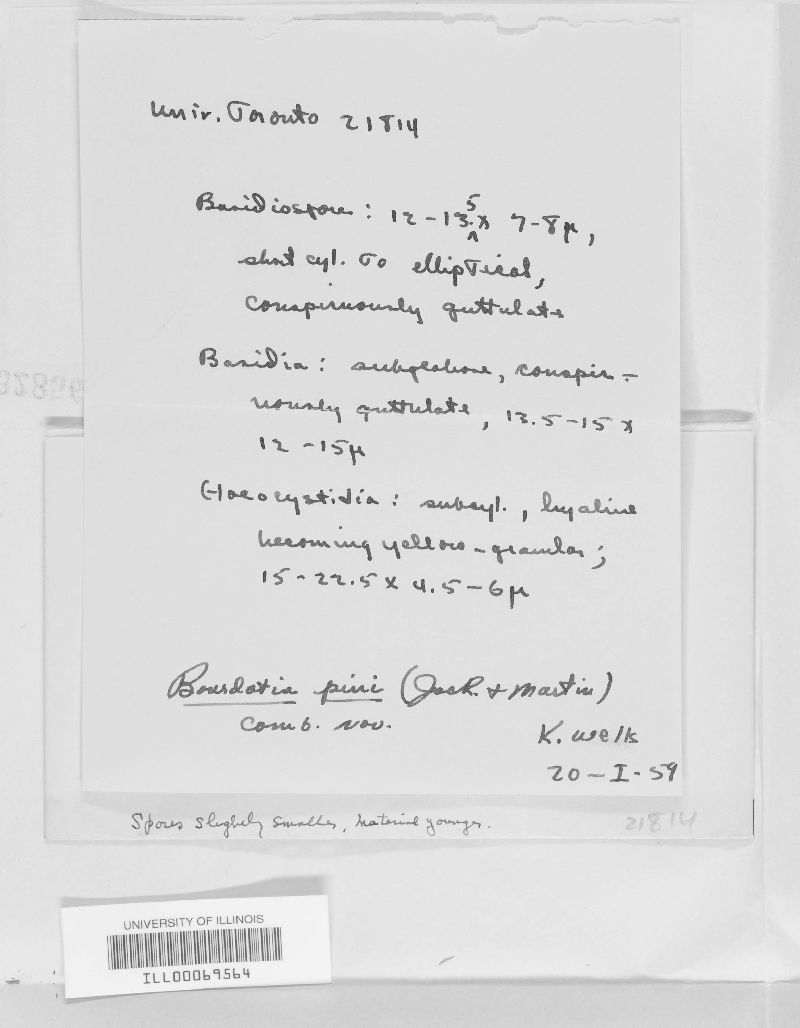 Univ. Toronto 21814
Basidiospores: 12-13.5 x 7-8µ,
short cyl. to elliptical,
conspicuously guttulate
Basidia: subglobose, conspic-
uously guttulate, 13.5-15 x
12-15µ
Gloeocystidia: subcyl., hyaline
becoming yellow-granular;
15-22.5 x 4.5-6µ
Bourdotia pini (Jack. + Martin)
comb. nov.
K. Wells
20-I-59
Spores slightly smaller, material younger.
21814
32856
UNIVERSITY OF ILLINOIS
ILL00069564